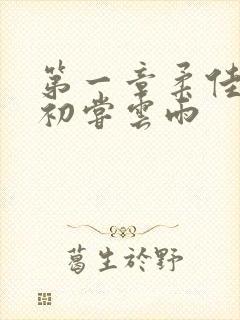 第一章柔佳
初嘗雲雨
葛生於野